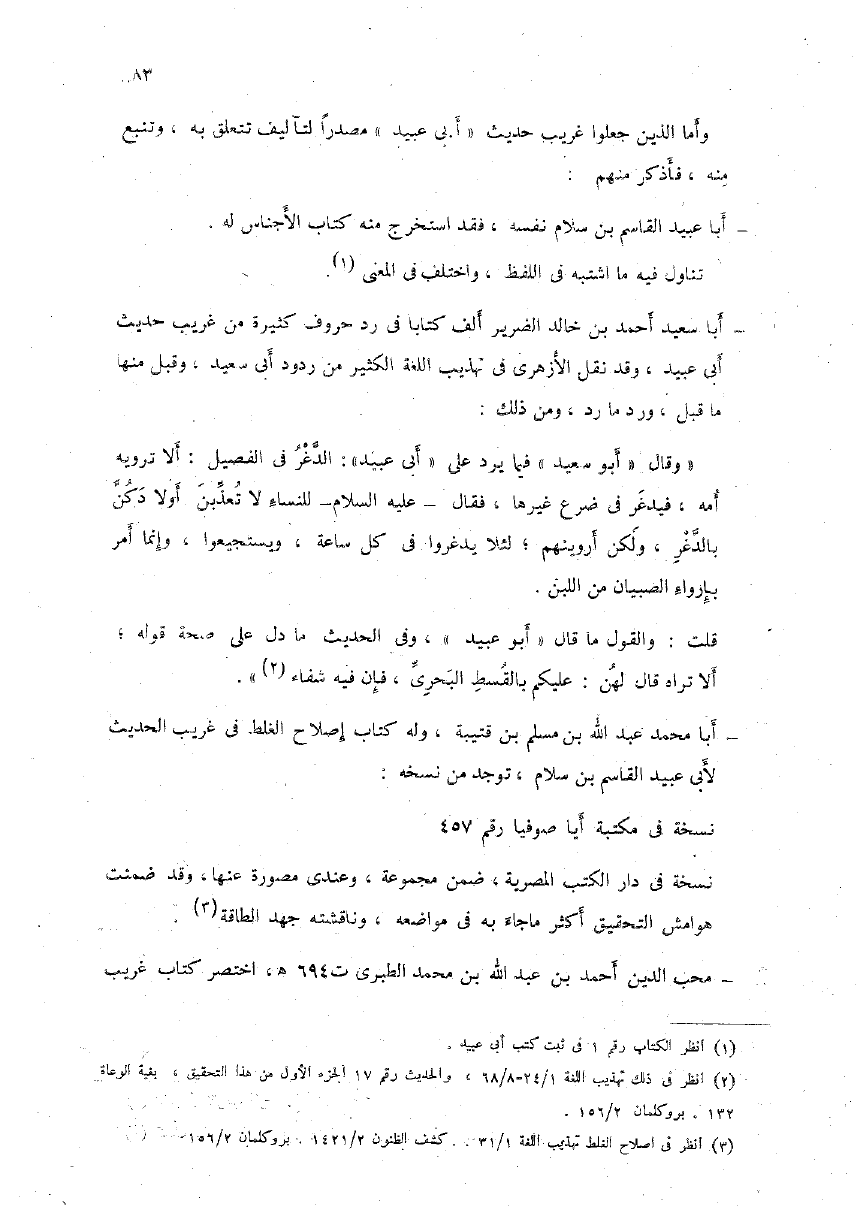 ٨٣
وأما الذين جعلوا غريب حديث « أبى عبيد » مصدراً لتآليف تتعلق به ، وتنبع
مِنه ، فأَذكر منهم :
ـ أَبا عبيد القاسم بن سلام نفسه ، فقد استخرج منه كتاب الأَجناس له .
تناول فيه ما اشتبه فى اللفظ ، واختلف فى المعنى (١).
ـ أَبا سعيد أَحمد بن خالد الضرير أَلف كتابا فى رد حروف كثيرة من غريب حديث
أَبى عبيد ، وقد نقل الأَزهرى فى تهذيب اللغة الكثير من ردود أَبى سعيد ، وقبل منها
ما قبل ، ورد ما رد ، ومن ذلك :
« وقال « أَبو سعيد » فيما يرد على « أَبى عبيد»: الدَّغْرُ فى الفصيل : أَلا ترويه
أُمه ، فيدغَر فى ضرع غيرها ، فقال ـ عليه السلام ـ للنساءِ لا تُعذِّبنَ أَولا دَكُنَّ
بالدَّغْرِ ، ولَكن أَروينهم ؛ لئلا يدغروا فى كل ساعة ، ويستجيعوا ، وإنما أَمر
بإرواءِ الصبيان من اللبن .
قلت : والقول ما قال « أَبو عبيد » ، وفى الحديث ما دل على صحة قوله ؛
أَلا تراه قال لهُن : عليكم بالقُسطِ البَحرىِّ ، فإن فيه شفاء (٢) » .
ـ أَبا محمد عبد الله بن مسلم بن قتيبة ، وله كتاب إصلاح الغلط فى غريب الحديث
لأَبى عبيد القاسم بن سلام ، توجد من نسخه :
نسخة فى مكتبة أَيا صوفيا رقم ٤٥٧
نسخة فى دار الكتب المصرية ، ضمن مجموعة ، وعندى مصورة عنها ، وقد ضمنت
هوامش التحقيق أَكثر ماجاءَ به فى مواضعه ، وناقشته جهد الطاقة(٣) .
ـ محب الدين أَحمد بن عبد الله بن محمد الطبرى ت٦٩٤ ه ، اختصر كتاب غريب
(١) انظر الكتاب رقم ١ فى ثبت كتب أبى عبيد .
(٢) انظر فى ذلك تهذيب اللغة ٢٤/١–٦٨/٨ ، والحديث رقم ١٧ الجزء الأول من هذا التحقيق ، بغية الوعاة
١٣٢ . بروكلمان ١٥٦/٢ .
(٣) انظر فى اصلاح الغلط تهذيب اللغة ٣١/١ . كشف الظنون ١٤٢١/٢ . بروكلمان ١٥٦/٢